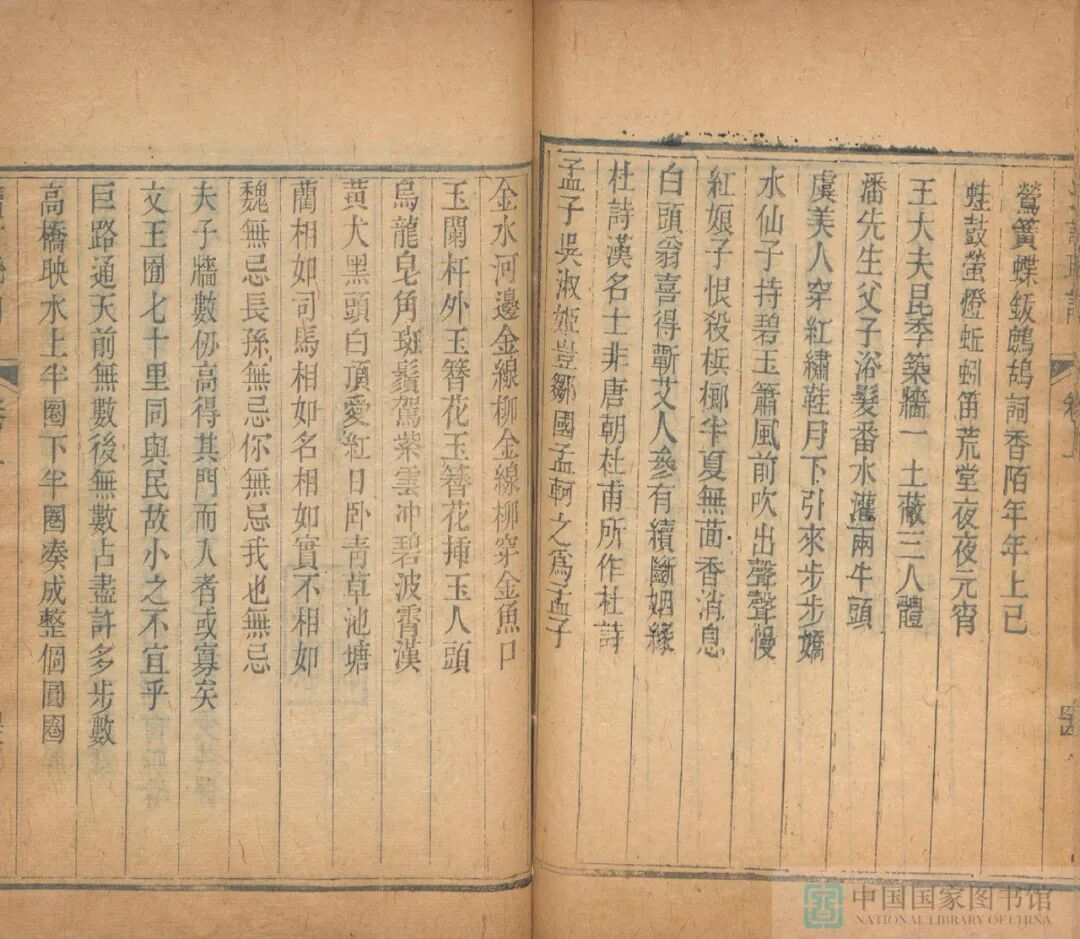 鶯簧蝶鈑鷓鴣詞香陌年年上巳
蛙鼓螢燈蚯蚓笛荒堂夜夜元宵
王大夫昆季築牆一土蔽三人體
潘先生父子浴髮番水灌兩牛頭
虞美人穿紅繡鞋月下引來步步嬌
水仙子持碧玉簫風前吹出聲聲慢
紅娘子恨殺梹榔半夏無茴香消息
白頭翁喜得蘄艾人參有續斷姻緣
杜詩漢名士非唐朝杜甫所作杜詩
孟子吳淑姬豈鄒國孟軻之爲孟子
金水河邊金線柳金線柳穿金魚口
玉闌杆外玉簪花玉簪花揷玉人頭
烏龍皂角斑鬚駕紫雲冲碧波霄漢
黃犬黑頭白頂愛紅日卧靑草池塘
藺相如司馬相如名相如實不相如
魏無忌長孫無忌你無忌我也無忌
夫子牆數仞高得其門而入者或寡矣
文王囿七十里同與民故小之不宜乎
巨路通天前無數後無數占盡許多步數
高橋映水上半圈下半圈凑成整個圓圈
中国国家图书馆
NATIONAL LIBRARY OF CHINA